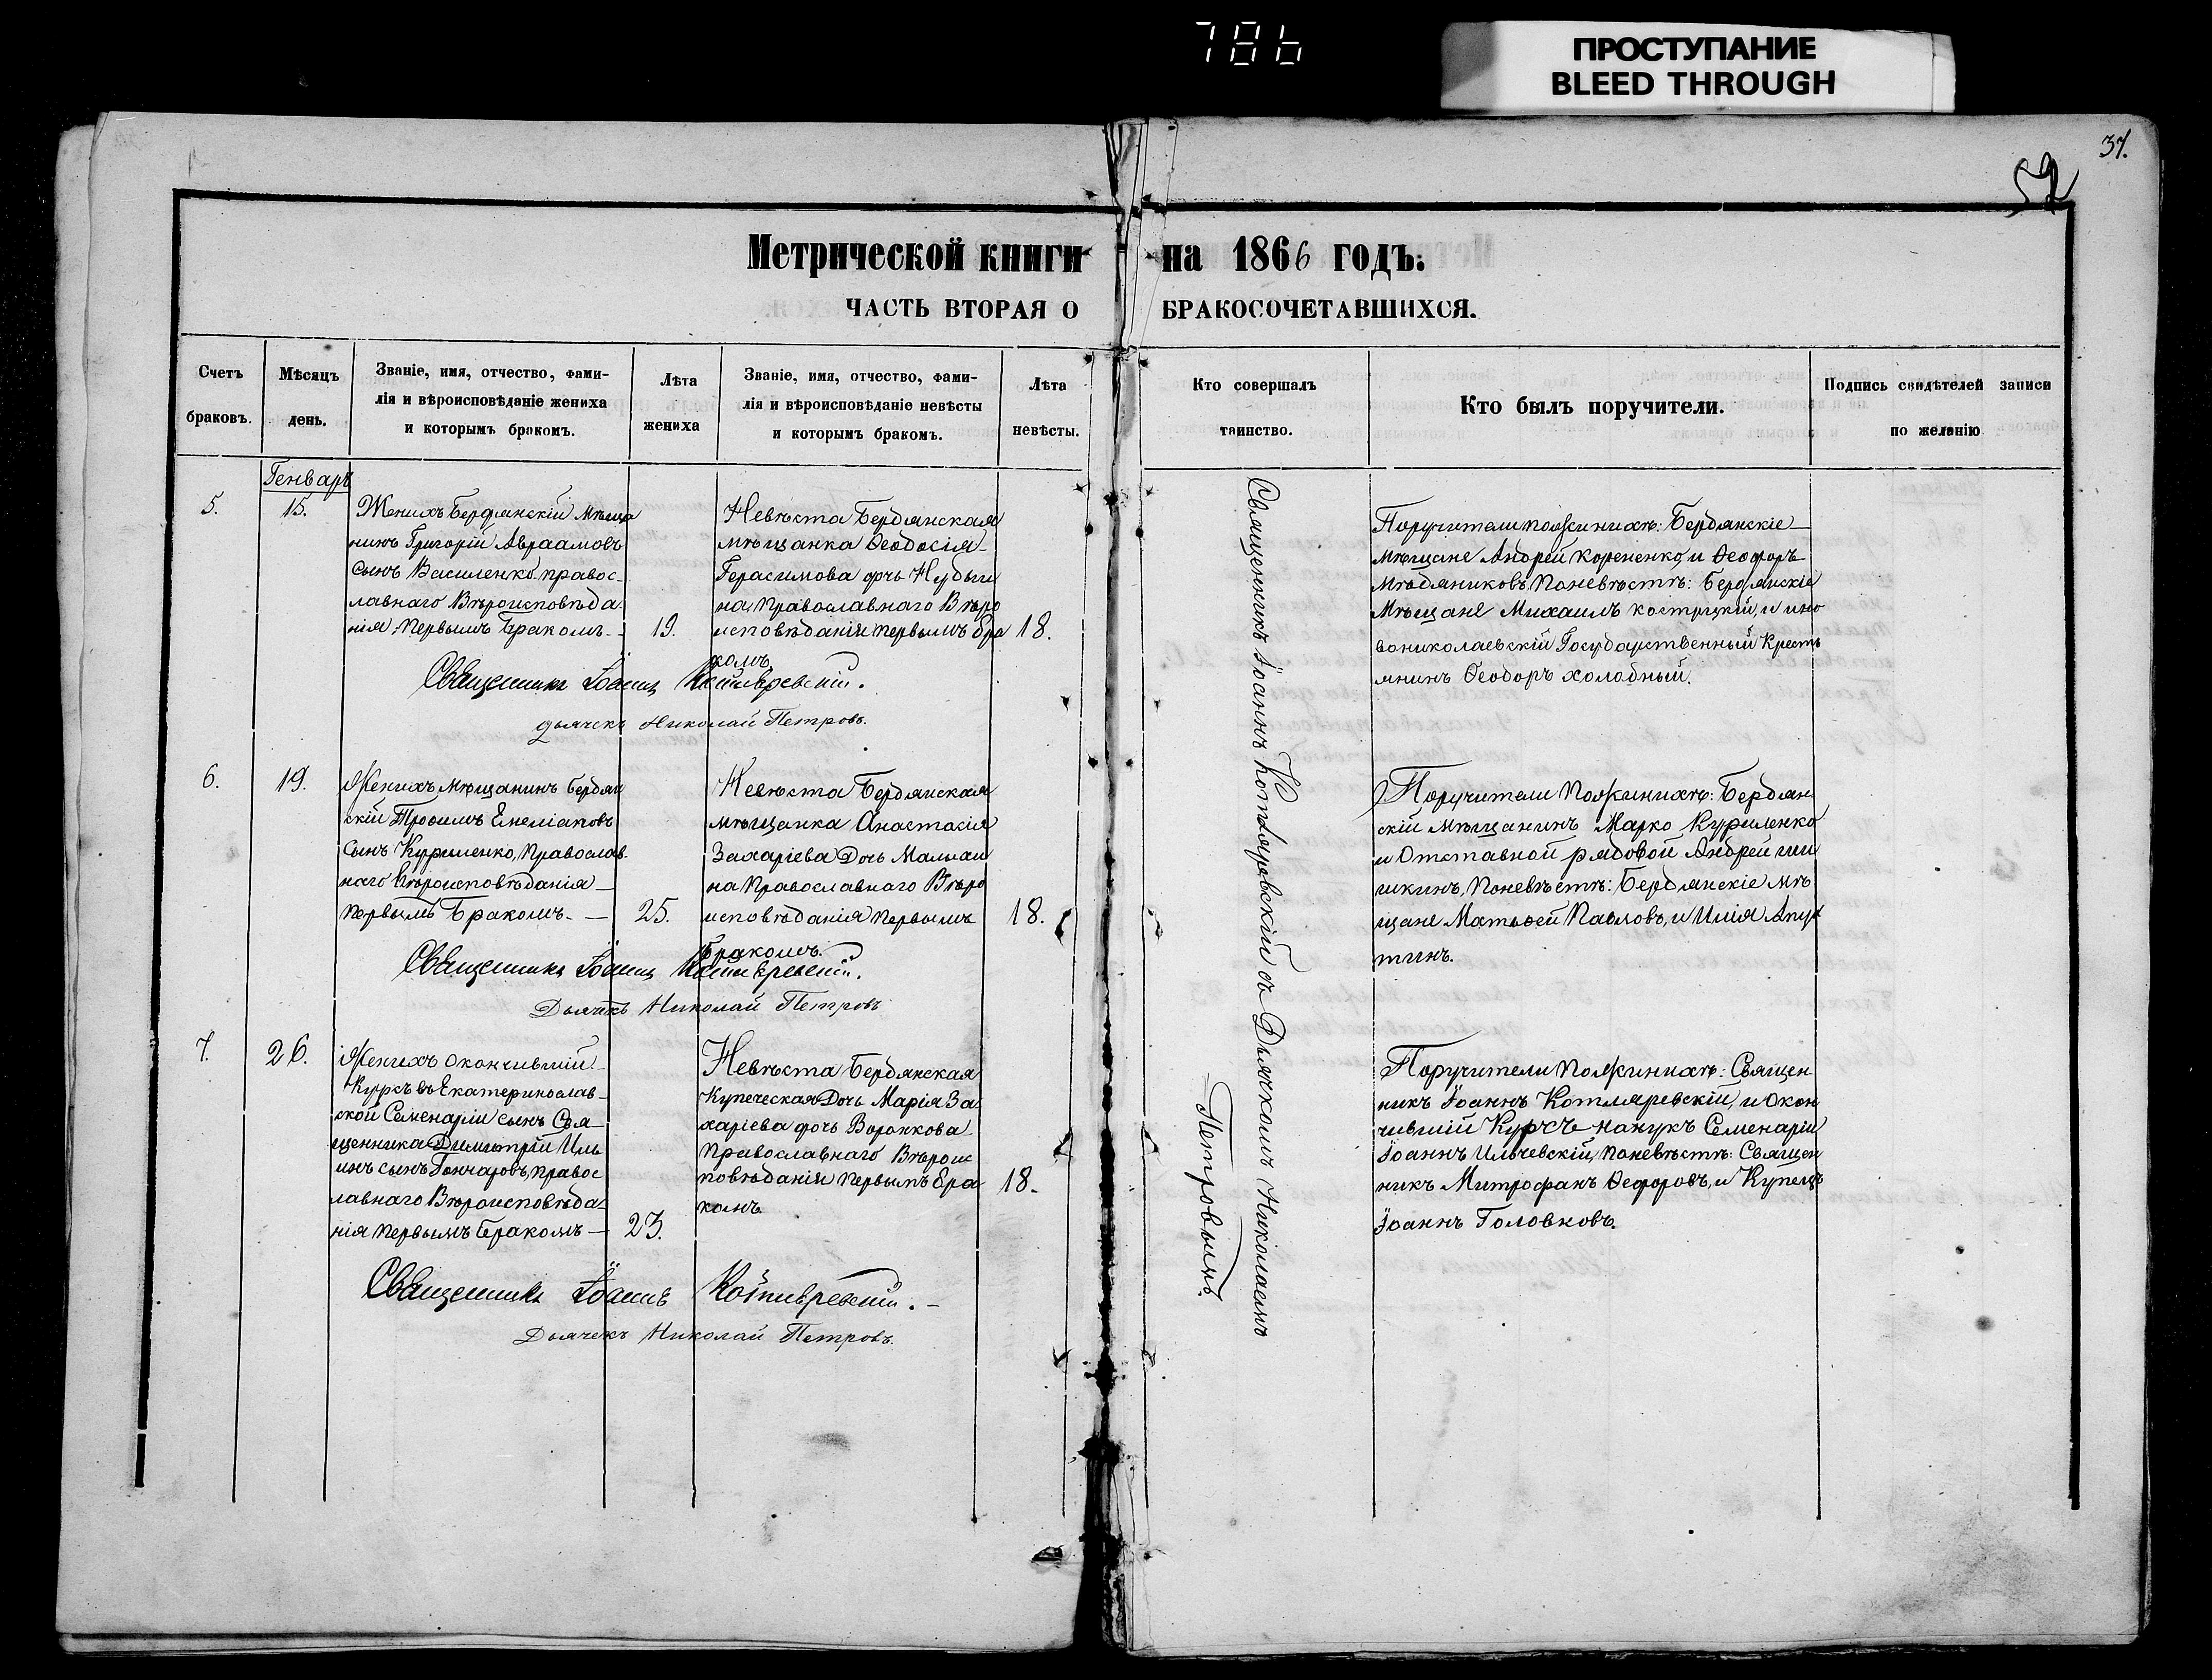 786
ПРОСТУПАНИЕ
BLEED THROUGH
37.
52
Метрической книги на 1866 годъ.
ЧАСТЬ ВТОРАЯ О БРАКОСОЧЕТАВШИХСЯ.
Счетъ
браковъ.
Мѣсяцъ
день.
Званіе, имя, отчество, фами-
лія и вѣроисповѣданіе жениха
и которымъ бракомъ.
Лѣта
жениха
Званіе, имя, отчество, фами-
лія и вѣроисповѣданіе невѣсты
и которымъ бракомъ.
Лѣта
невѣсты.
Кто совершалъ
таинство.
Кто былъ поручители.
Подпись свидѣтелей записи
по желанію
Генварь
5.
15.
Женихъ Бердянскій мѣща
нинъ Григорій Авраамовъ
сынъ Василенко, правос-
лавнаго Вѣроисповѣда-
нія, первымъ бракомъ. -
19.
Невѣста Бердянская
мѣщанка Ѳеодосія
Герасимова дочь
на, Православнаго Вѣро
исповѣданія первымъ бра
комъ
18.
Священникъ Іоаннъ Котляревскій.
дьячекъ Николай Петровъ.
Поручители по женихѣ: Бердянскіе
мѣщане Андрей Корененко, и Ѳеодоръ
Мѣдяниковъ, по невѣстѣ: Бердянскіе
мѣщане Михаилъ Кострицкій, и
вониколаевскій Государственный Кресть
янинъ Ѳеодоръ Холодный.
6.
19.
Женихъ мѣщанинъ Бердян
скій Трофимъ Емеліановъ
сынъ Куриленко, Православ-
наго Вѣроисповѣданія
первымъ Бракомъ. —
25.
Невѣста Бердянская
мѣщанка Анастасія
Захаріева Дочь
на Православнаго Вѣро
исповѣданія первымъ
Бракомъ.
18.
Священникъ Іоаннъ Котляревскій.
Дьячекъ Николай Петровъ
Поручители по женихѣ: Бердян
скій мѣщанинъ Марко Куриленко
и Отставной рядовой Андрей Ши
шкинъ, по невѣстѣ: Бердянскіе мѣ
щане Матѳей Павловъ, и Илія Апух
тинъ.
7.
26.
Женихъ окончившій
Курсъ въ Екатеринослав-
ской Семенаріи сынъ Свя-
щенника Димитрій Иль
инъ сынъ Гончаровъ, правос
лавнаго Вѣроисповѣда-
нія первымъ бракомъ —
23.
Невѣста Бердянская
Купеческая Дочь Марія За-
харіева дочь Воронкова
Православнаго Вѣроис
повѣданія первымъ бра
комъ
18.
Священникъ Іоаннъ Котляревскій. -
Дьячекъ Николай Петровъ.
Поручители по женихѣ: Священ-
никъ Іоаннъ Котляревскій, и Окон
чившій Курсъ наукъ Семенаріи
Іоаннъ Ильчевскій, по невѣстѣ: Священ
никъ Митрофанъ Ѳедоровъ, и Купецъ
Іоаннъ Головковъ.
Священникъ Іоаннъ Котляревскій съ Дьячкомъ Николаемъ
Петровымъ.